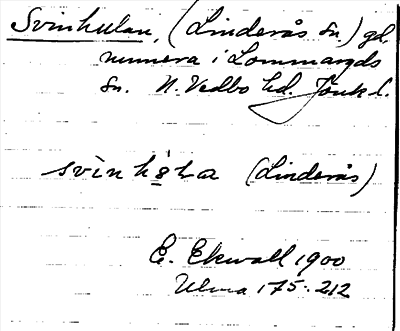 Svinhulan, (Linderås sn.) gd.
numera i Lommaryds
sn. N. Vedbo hd. Jönk l.
svìnhəla (Linderås)
E. Ekwall 1900
Ulma 175:212